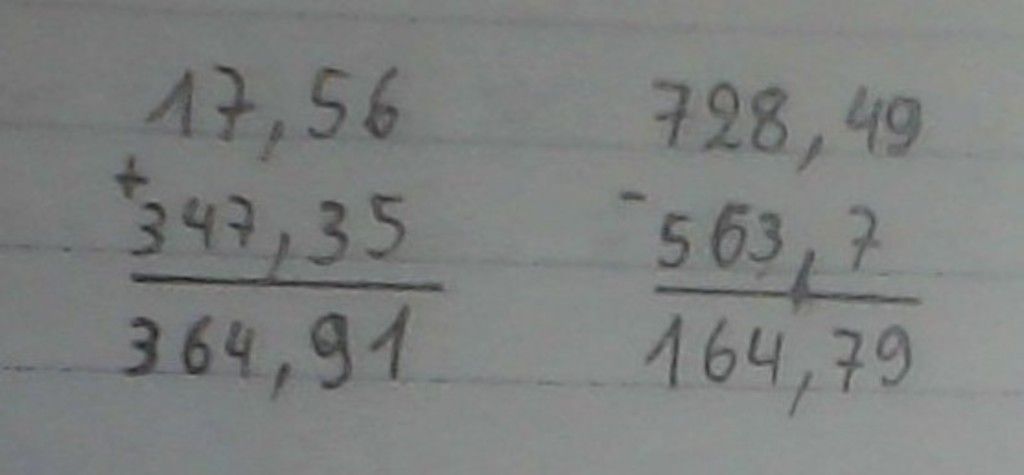 17,56
+
347,35
364,91
728,49
-
563,7
164,79